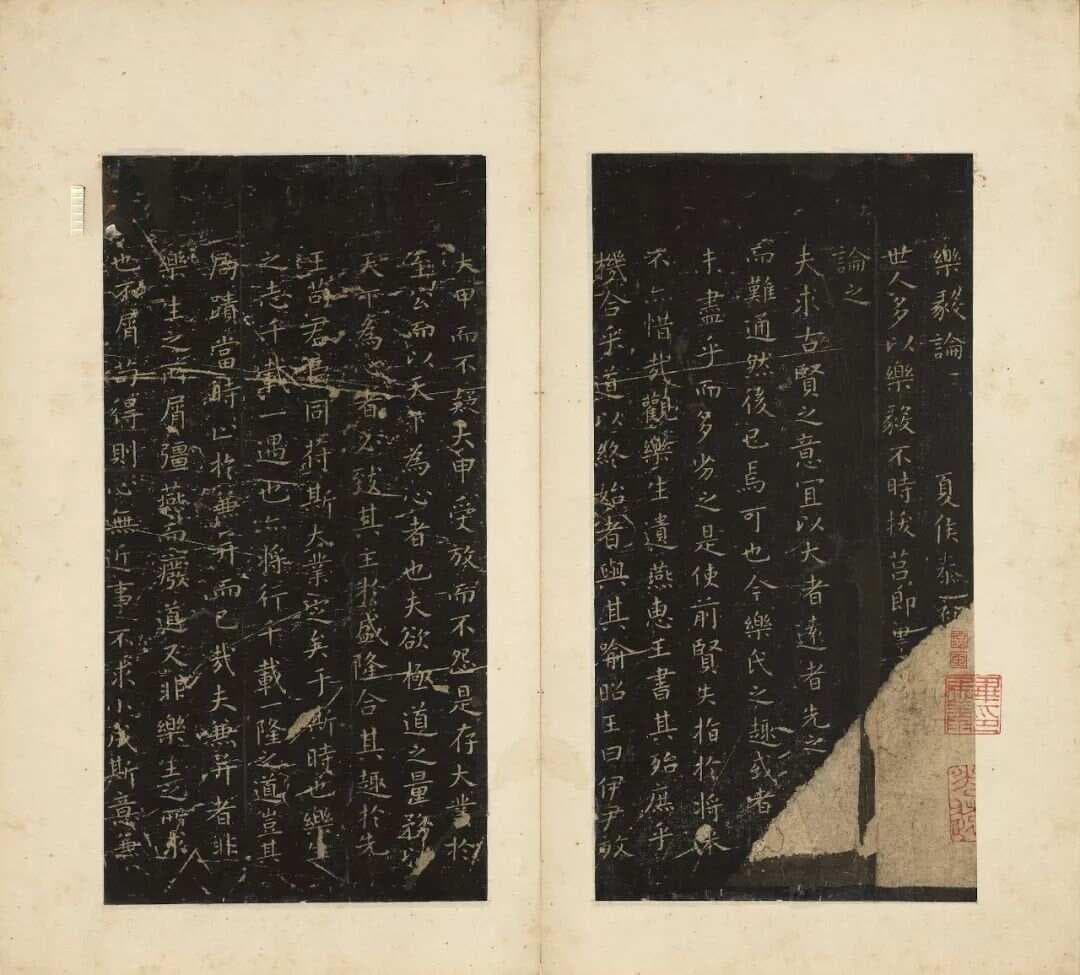 樂毅論 夏侯泰
世人多以樂毅不時拔莒即
論之
夫求古賢之意宜以大者遠者先之
而難通然後已焉可也今樂氏之趣或者
未盡乎而多劣之是使前賢失指於將來
不亦惜哉觀樂生遺燕惠王書其殆庶乎
機合乎道以終始者與其喻昭王曰伊尹放
大甲而不疑大甲受放而不怨是存大業於
至公而以天下為心者也夫欲極道之量務以
天下為心者必致其主於盛隆合其趣於先
王苟君臣同符斯大業定矣于斯時也樂生
之志千載一遇也亦將行千載一隆之道豈其
局蹟當時止於兼并而已哉夫兼并者非
樂生之所屑彊燕而廢道又非樂生之所求
也不屑苟得則心無近事不求小成斯意兼